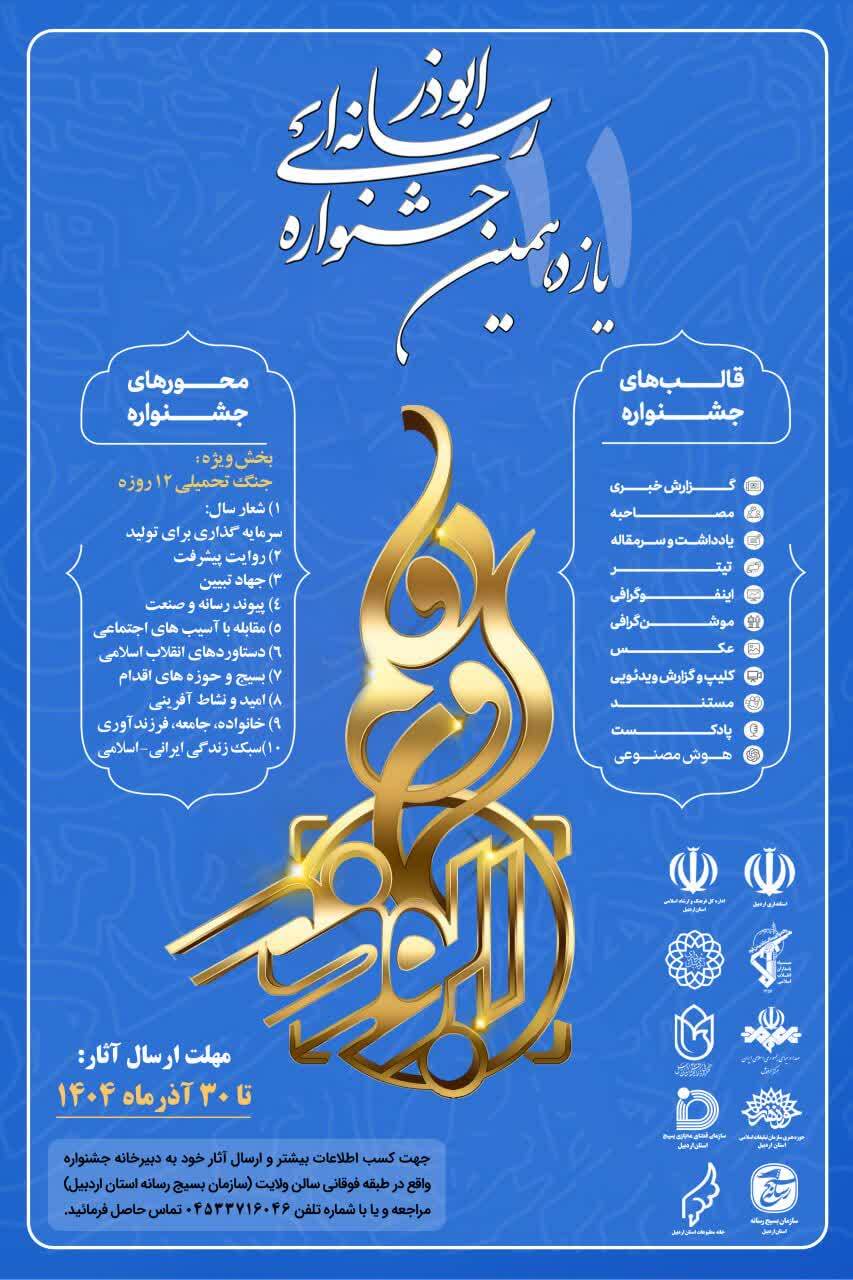 یازدهمین
جشنواره
رسانه‌ای
ابوذر
۱۱
قالب‌های
جشنواره
گزارش خبری
مصاحبه
یادداشت و سرمقاله
تیتر
اینفوگرافی
موشن‌گرافی
عکس
کلیپ و گزارش ویدئویی
مستند
پادکست
هوش مصنوعی
محورهای
جشنواره
بخش ویژه:
جنگ تحمیلی ۱۲ روزه
۱) شعار سال:
سرمایه گذاری برای تولید
۲) روایت پیشرفت
۳) جهاد تبیین
۴) پیوند رسانه و صنعت
۵) مقابله با آسیب های اجتماعی
۶) دستاوردهای انقلاب اسلامی
۷) بسیج و حوزه های اقدام
۸) امید و نشاط آفرینی
۹) خانواده، جامعه، فرزندآوری
۱۰)سبک زندگی ایرانی-اسلامی
استانداری اردبیل
اداره کل فرهنگ و ارشاد اسلامی
استان اردبیل
سپاه
پاسداران
انقلاب
اسلامی
صدا و سیمای جمهوری اسلامی ایران
حوزه هنری سازمان تبلیغات اسلامی
استان اردبیل
سازمان فضای مجازی بسیج
استان اردبیل
سازمان بسیج رسانه
استان اردبیل
خانه مطبوعات استان اردبیل
مهلت ارسال آثار:
تا ۳۰ آذر ماه ۱۴۰۴
جهت کسب اطلاعات بیشتر و ارسال آثار خود به دبیرخانه جشنواره
واقع در طبقه فوقانی سالن ولایت (سازمان بسیج رسانه استان اردبیل)
مراجعه و یا با شماره تلفن ۰۴۵۳۳۷۱۶۰۴۶ تماس حاصل فرمائید.